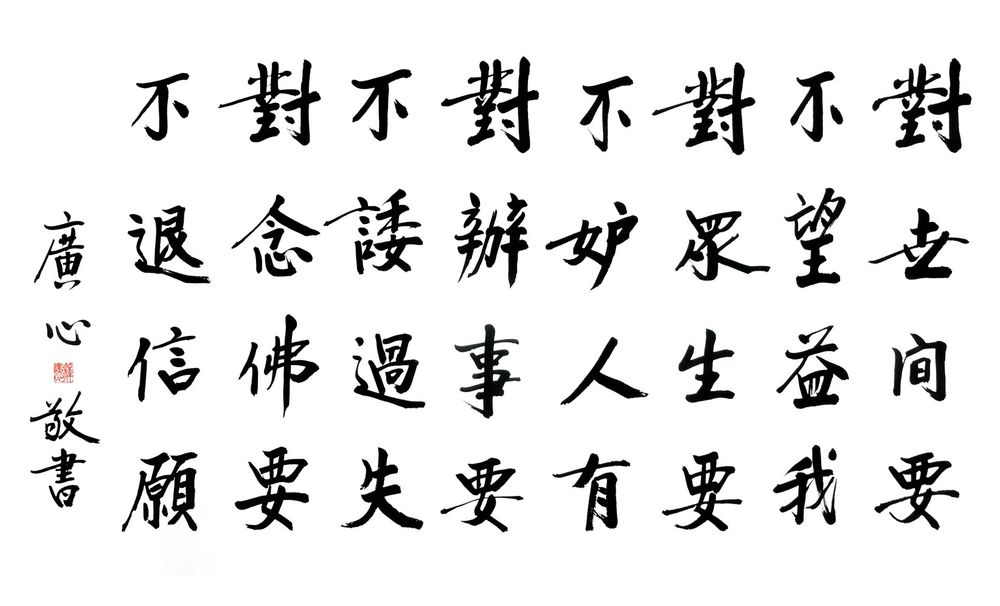 對世間要
不望益我
對眾生要
不妒人有
對辦事要
不諉過失
對念佛要
不退信願
廣心敬書